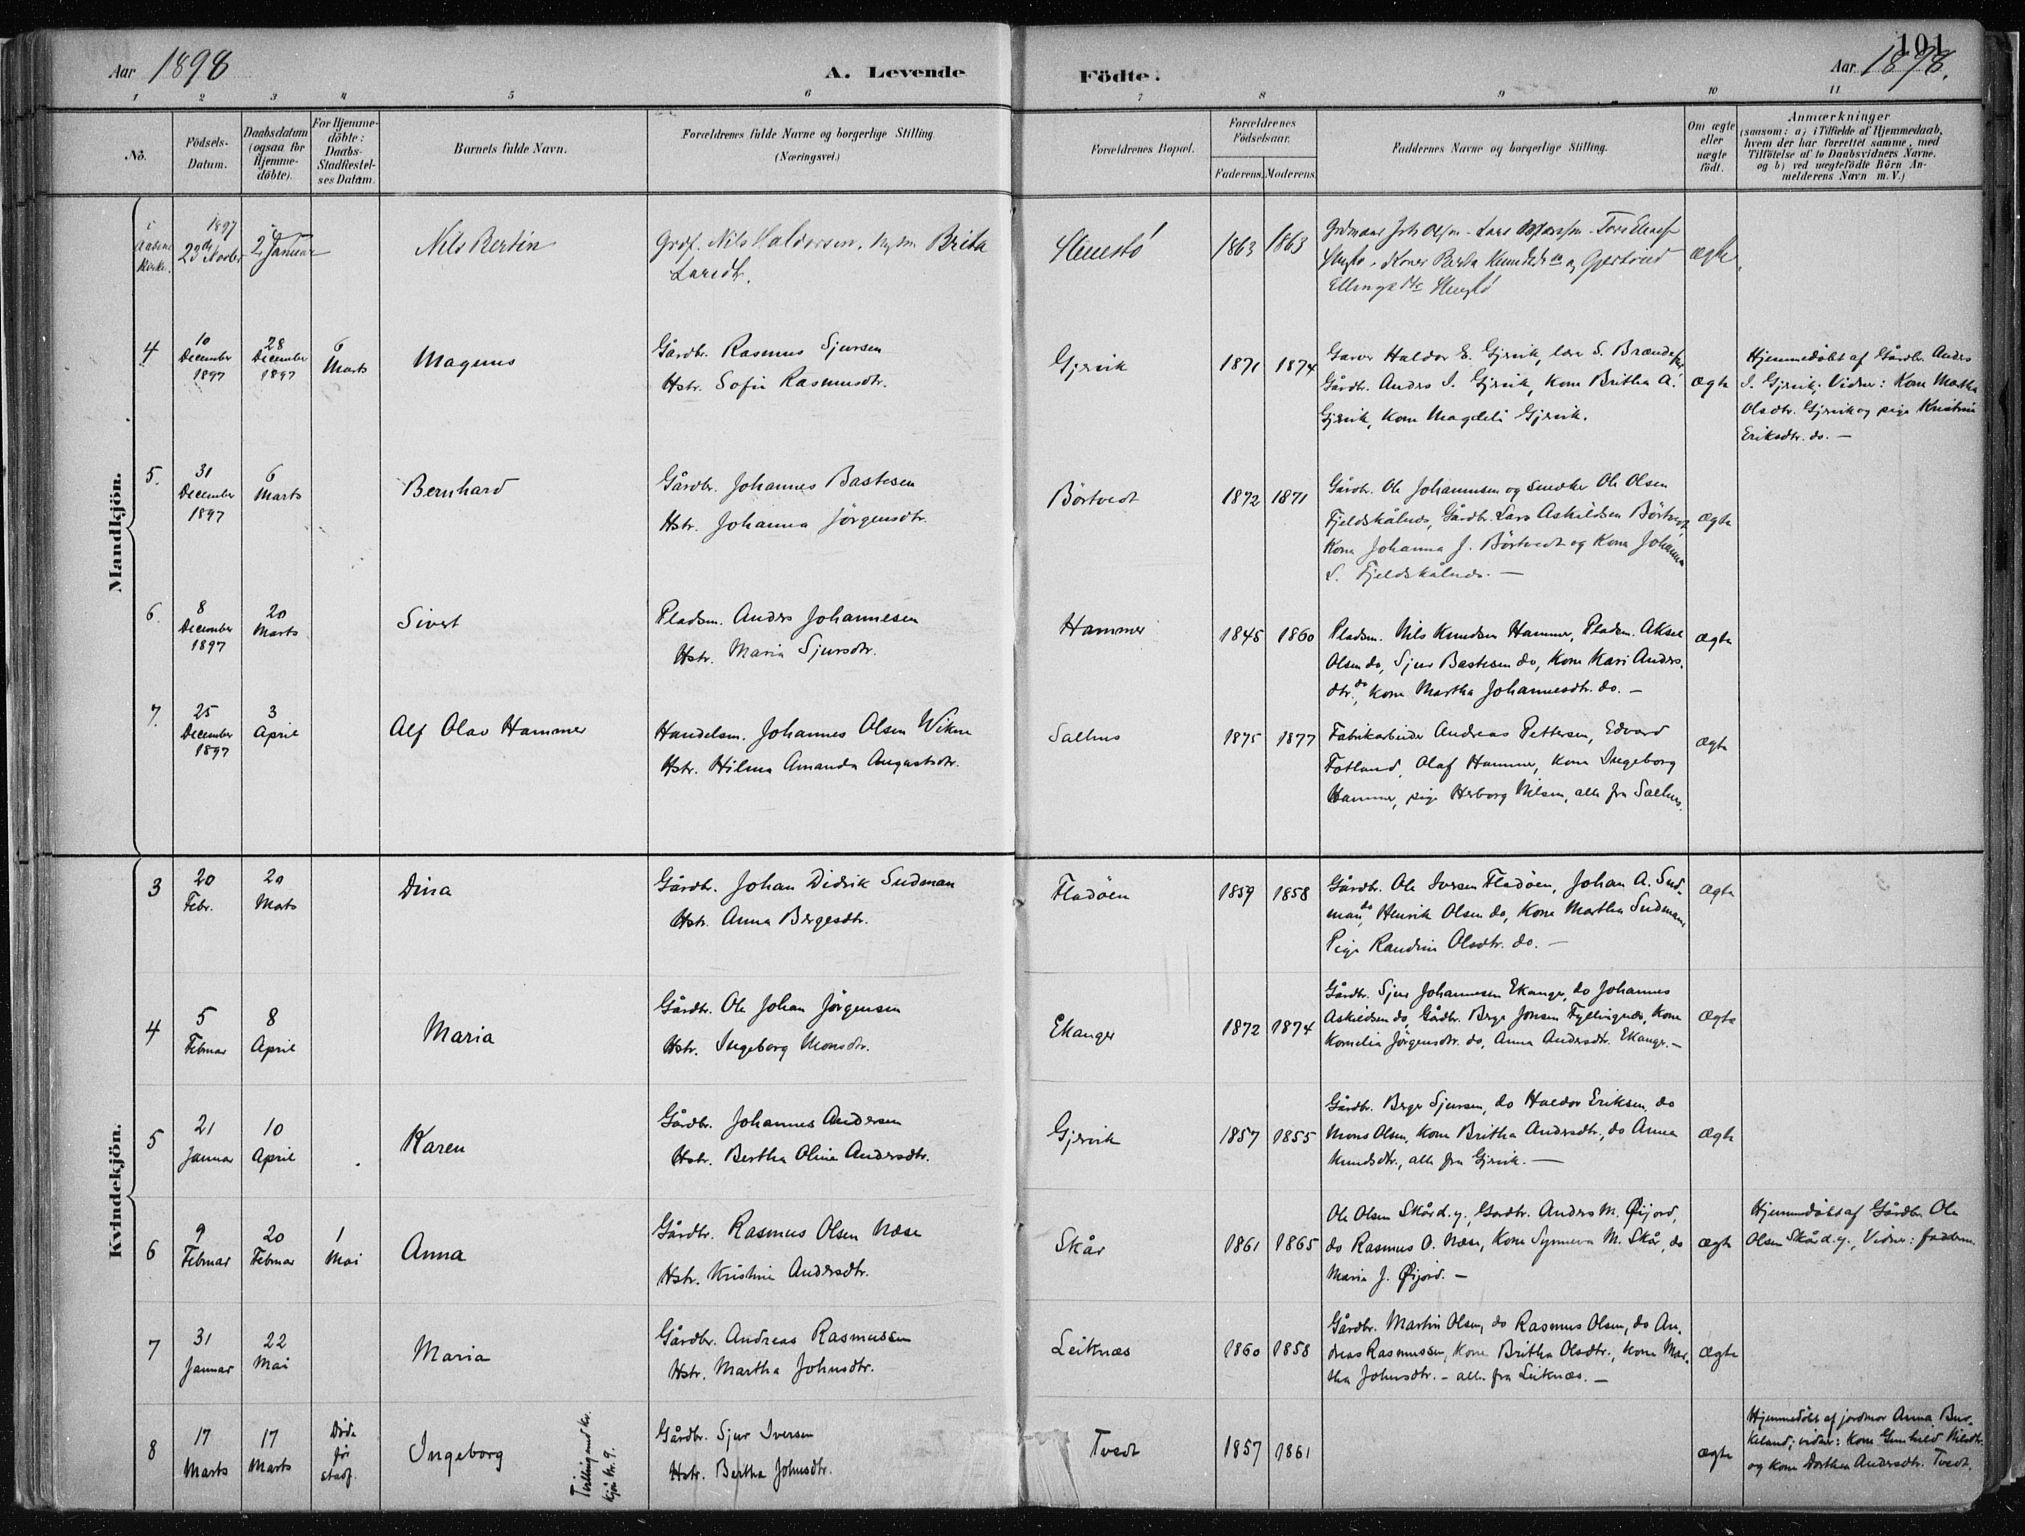 101
Aar 1898
A. Levende
Födte.
Aar 1898.
1 2 3 4 5 6 7 8 9 10 11
No.
Födsels-
Datum.
Daabsdatum
(ogsaa for
Hjemme-
döbte).
For Hjemme-
döbte:
Daabs-
Stadfæstel-
ses Datum.
Barnets fulde Navn.
Forældrenes fulde Navne og borgerlige Stilling.
(Næringsvei.)
Forældrenes Bopæl.
Forældrenes
Födselsaar.
Faderens. Moderens.
Faddernes Navne og borgerlige Stilling.
Om ægte
eller
uægte
födt.
Anmærkninger
(saasom: a) i Tilfælde af Hjemmedaab,
hvem der har forrettet samme, med
Tilföielse af to Daabsvidners Navne,
og b) ved uægtefödte Börn An-
melderens Navn m. V.)
Mandkjön.
1897
Nils Bertin
Nils Haldorsen, Brita
Larsdtr.
1863 1863
ægte
4
10
December
1897
28
December
1897
6
Marts
Magnus
Gårdbr. Rasmus Sjursen
Hstr. Sofie Rasmusdtr.
Gjervik
1871 1874
Haldor E. Gjervik,
Gårdbr. Anders S. Gjervik, Kone Britha A.
Gjervik, Kone Magdeli Gjervik.
ægte
Hjemmedøbt af Gårdbr. Anders
S. Gjervik; Vidner: Kone Martha
Olsdtr. Gjervik og pige Kristine
Eriksdtr. do. —
5.
31
December
1897
6
Marts
Bernhard
Gårdbr. Johannes Bastesen
Hstr. Johanna Jörgensdtr.
Börtvedt
1872 1871
Gårdbr. Ole Johannesen og Snedker Ole Olsen
Fjeldskålnes, Gårdbr. Lars Askildsen Börtvedt,
Kone Johanna J. Börtvedt og Kone Johanna
S. Fjeldskålnes. —
ægte
6.
8
December
1897
20
Marts
Sivert
Pladsm. Anders Johannesen
Hstr. Maria Sjursdtr.
Hammer
1845 1860
Pladsm. Nils Knudsen Hammer, Pladsm. Aksel
Olsen do, Sjur Bastesen do, Kone Kari Anders-
dtr. do, Kone Martha Johannesdtr. do. —
ægte
7.
25
December
1897
3
April
Alf Olav Hammer
Handelsm. Johannes Olsen Wikne
Hstr. Hilma Amanda Augustsdtr.
Salhus
1875 1877
Fabrikarbeider Andreas Pettersen, Edvard
Fotland, Olaf Hammer, Kone Ingeborg
Hammer, pige Herborg Nilsen, alle fra Salhus.
ægte
Kvindekjön.
3
20
Febr.
20
Marts
Dina
Gårdbr. Johan Didrik Sudman
Hstr. Anna Bergesdtr.
Fladöen
1859 1858
Gårdbr. Ole Iversen Fladöen, Johan A. Sud-
man do, Henrik Olsen do, Kone Martha Sudmann,
Pige Randine Olsdtr. do. —
ægte
4
5
Februar
8
April
Maria
Gårdbr. Ole Johan Jörgensen
Hstr. Ingeborg Monsdtr.
Ekanger
1872 1874
Gårdbr. Sjur Johannesen Ekanger, do Johannes
Askildsen do, Gårdbr. Berge Jonsen Fyllingnes, Kone
Kornelia Jörgensdtr. do, Anna Andersdtr. Ekanger. —
ægte
5
21
Januar
10
April
Karen
Gårdbr. Johannes Andersen
Hstr. Bertha Oline Andersdtr.
Gjervik
1857 1855
Gårdbr. Berge Sjursen, do Haldor Eriksen, do
Mons Olsen, Kone Britha Andersdtr., do Anna
Knudsdtr., alle fra Gjervik. —
ægte
6
9
Februar
20
Februar
1
Mai
Anna
Gårdbr. Rasmus Olsen Næse
Hstr. Kristine Andersdtr.
Skår
1861 1865
Ole Olsen Skår d.y., Gardbr. Anders M. Öijord,
do Rasmus O. Næse, Kone Synneva M. Skår, do
Maria J. Öijord. —
ægte
Hjemmedøbt af Gårdbr. Ole
Olsen Skår d.y., Vidner: fadderne
7
31
Januar
22
Mai
Maria
Gårdbr. Andreas Rasmussen
Hstr. Martha Johnsdtr.
Leiknæs
1860 1858
Gårdbr. Martin Olsen, do Rasmus Olsen, do An-
dreas Rasmussen, Kone Britha Olsdtr., Kone Mar-
tha Johnsdtr. — alle fra Leiknæs. —
ægte
8
17
Marts
17
Marts
Död
för
stadf.
Ingeborg
Tvilling med Kv.
kjön Nr. 9.
Gårdbr. Sjur Iversen
Hstr. Bertha Johnsdtr.
Tvedt
1857 1861
ægte
Hjemmedøbt af jordmor Anna Bur-
keland; vidner: Kone Gunhild Nilsdtr.
og Kone Dorthea Andersdtr. Tvedt.